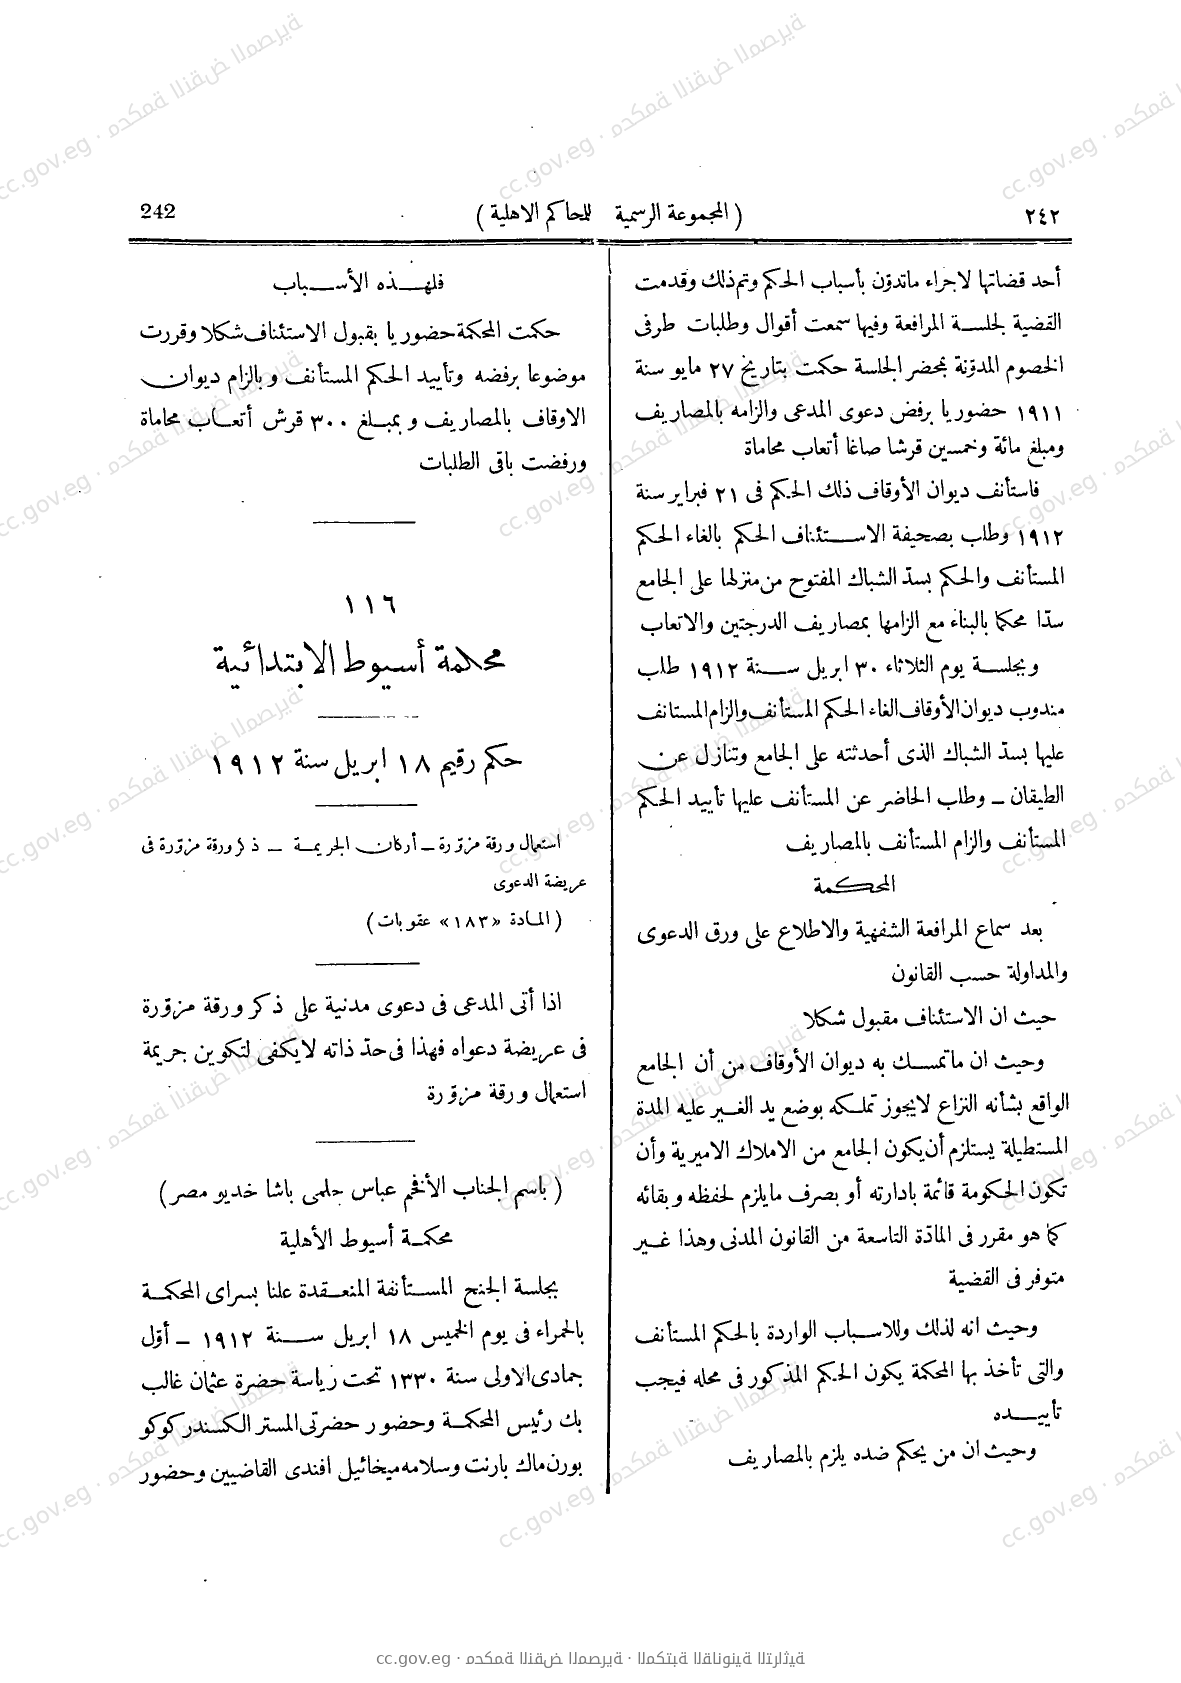 ٢٤٢ ( المجموعة الرسمية للمحاكم الاهلية ) 242
أحد قضاتها لاجراء ماتدوّن بأسباب الحكم وتم ذلك وقدمت
القضية لجلسة المرافعة وفيها سمعت أقوال وطلبات طرفى
الخصوم المدوّنة بمحضر الجلسة حكمت بتاريخ ٢٧ مايو سنة
١٩١١ حضوريا برفض دعوى المدعى والزامه بالمصاريف
ومبلغ مائة وخمسين قرشا صاغا أتعاب محاماة
فاستأنف ديوان الأوقاف ذلك الحكم فى ٢١ فبراير سنة
١٩١٢ وطلب بصحيفة الاستئناف الحكم بالغاء الحكم
المستأنف والحكم بسدّ الشباك المفتوح من منزلها على الجامع
سدّا محكما بالبناء مع الزامها بمصاريف الدرجتين والاتعاب
وبجلسة يوم الثلاثاء ٣٠ ابريل سنة ١٩١٢ طلب
مندوب ديوان الأوقاف الغاء الحكم المستأنف والزام المستانف
عليها بسدّ الشباك الذى أحدثته على الجامع وتنازل عن
الطيقان ــ وطلب الحاضر عن المستأنف عليها تأييد الحكم
المستأنف والزام المستأنف بالمصاريف
المحكمة
بعد سماع المرافعة الشفهية والاطلاع على ورق الدعوى
والمداولة حسب القانون
حيث ان الاستئناف مقبول شكلا
وحيث ان ماتمسك به ديوان الأوقاف من أن الجامع
الواقع بشأنه النزاع لايجوز تملكه بوضع يد الغير عليه المدة
المستطيلة يستلزم أن يكون الجامع من الاملاك الاميرية وأن
تكون الحكومة قائمة بادارته أو بصرف مايلزم لحفظه وبقائه
كما هو مقرر فى المادّة التاسعة من القانون المدنى وهذا غير
متوفر فى القضية
وحيث انه لذلك وللاسباب الواردة بالحكم المستأنف
والتى تأخذ بها المحكمة يكون الحكم المذكور فى محله فيجب
تأييده
وحيث ان من يحكم ضده يلزم بالمصاريف
فلهذه الأسباب
حكمت المحكمة حضوريا بقبول الاستئناف شكلا وقررت
موضوعا برفضه وتأييد الحكم المستأنف وبالزام ديوان
الاوقاف بالمصاريف وبمبلغ ٣٠٠ قرش أتعاب محاماة
ورفضت باقى الطلبات
١١٦
محكمة أسيوط الابتدائية
حكم رقيم ١٨ ابريل سنة ١٩١٢
استعمال ورقة مزوّرة ــ أركان الجريمة ــ ذكر ورقة مزوّرة فى
عريضة الدعوى
( المادة «١٨٣» عقوبات )
اذا أتى المدعى فى دعوى مدنية على ذكر ورقة مزوّرة
فى عريضة دعواه فهذا فى حدّ ذاته لايكفى لتكوين جريمة
استعمال ورقة مزوّرة
( باسم الجناب الأفخم عباس حلمى باشا خديو مصر )
محكمة أسيوط الأهلية
بجلسة الجنح المستأنفة المنعقدة علنا بسراى المحكمة
بالحمراء فى يوم الخميس ١٨ ابريل سنة ١٩١٢ ــ أوّل
جمادى الاولى سنة ١٣٣٠ تحت رياسة حضرة عثمان غالب
بك رئيس المحكمة وحضور حضرتى المستر الكسندر كوكو
بورن ماك بارنت وسلامه ميخائيل افندى القاضيين وحضور
cc.gov.eg · محكمة النقض المصرية · المكتبة القانونية التراثية